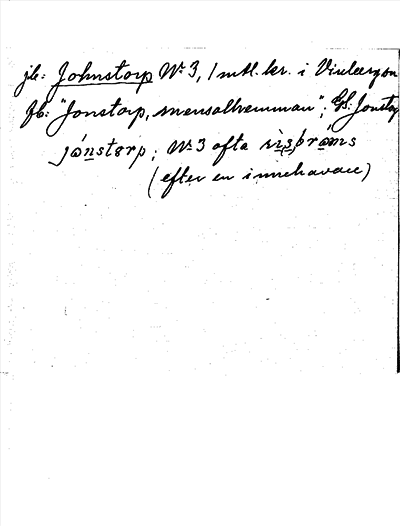 jb: Johnstorp No 3, 1 mtl. kr. i Vinberg sn
fb: "Jonstorp, mensalhemman"; GS. Jonstorp
jónstørp; No 3 ofta
(efter en innehavare)